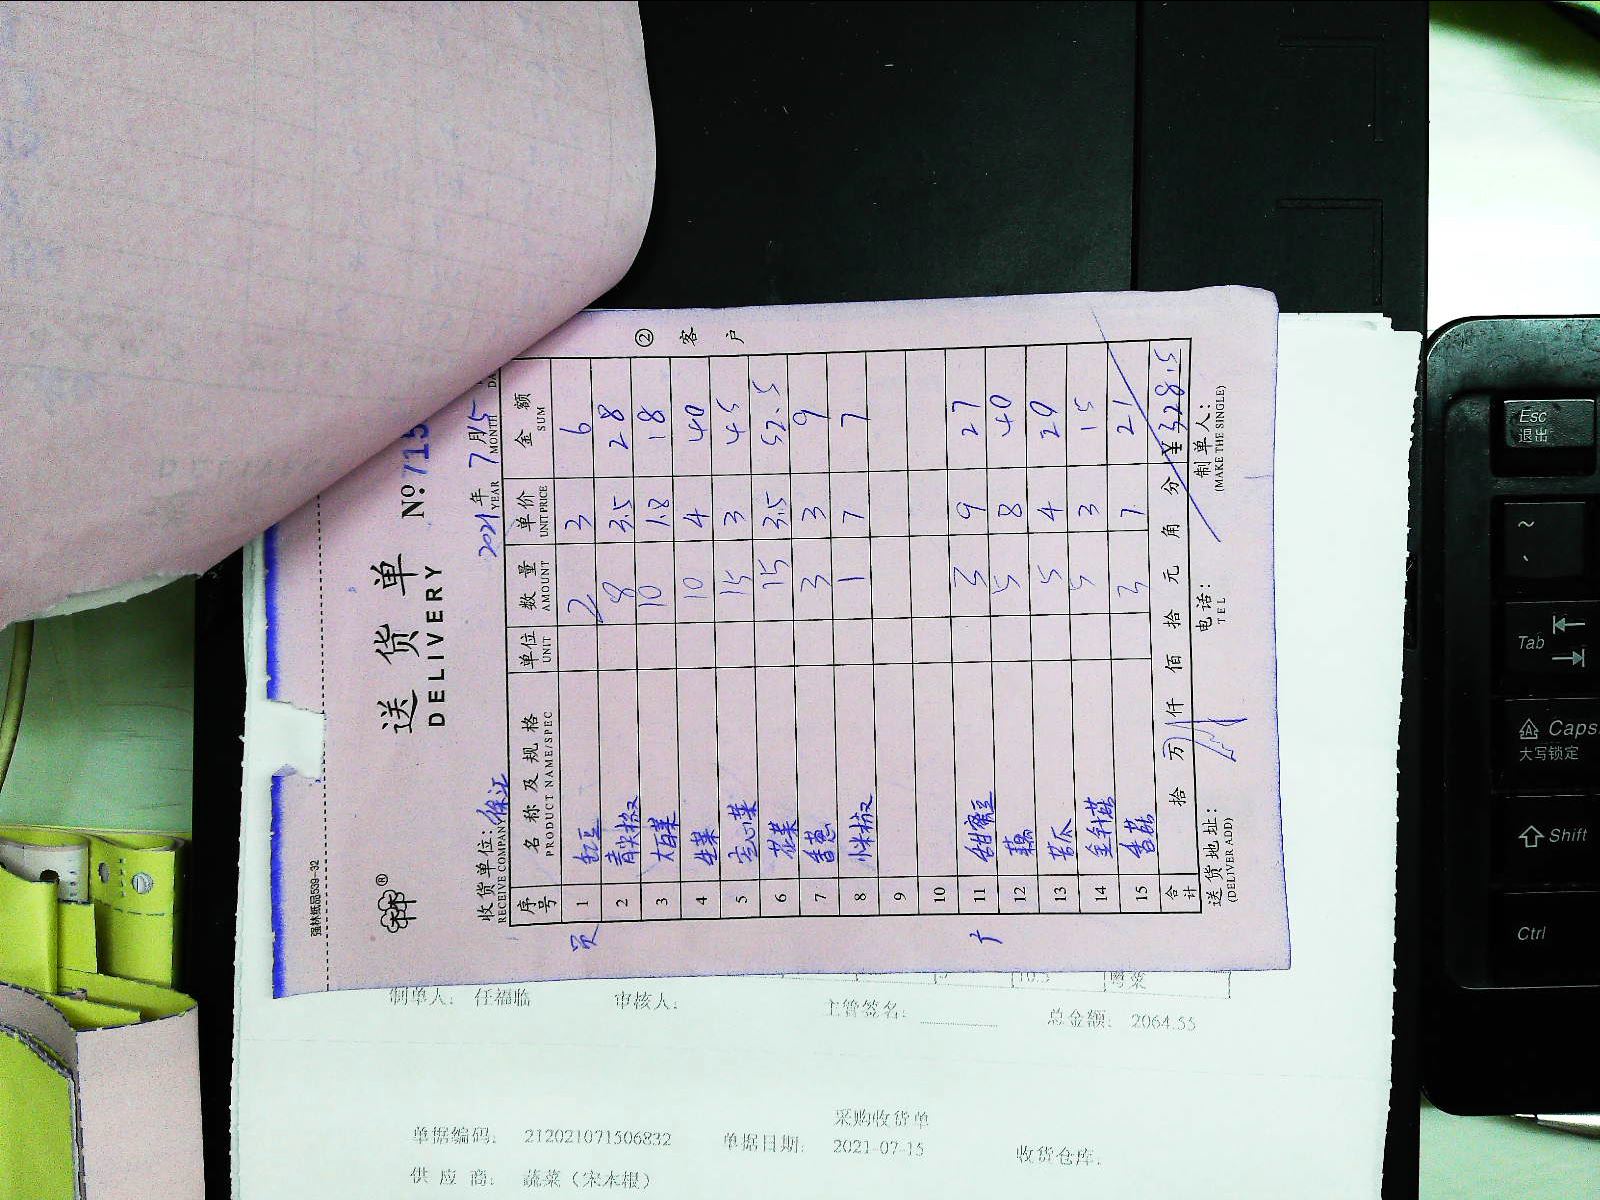 强林纸品539-32
送货单
DELIVERY
№ 715
收货单位: 徐江 2021年 7月15
RECEIVE COMPANY YEAR MONTH DA
序号 名称及规格 单位 数量 单价 金额
PRODUCT NAME/SPEC UNIT AMOUNT UNIT PRICE SUM
1 豇豆 2 3 6
2 青尖椒 8 3.5 28
3 大白菜 10 1.8 18
4 生菜 10 4 40
5 空心菜 15 3 45
6 花菜 15 3.5 52.5
7 香葱 3 3 9
8 小米椒 1 7 7
9
10
11 甜蜜豆 3 9 27
12 藕 5 8 40
13 苦瓜 5 4 20
14 金针菇 5 3 15
15 香菇 3 7 21
合计 拾 万 仟 佰 拾 元 角 分 ¥328.5
送货地址: 电话: 制单人:
(DELIVER ADD) TEL (MAKE THE SINGLE)
② 客户
10.5 粤菜
制单人: 任福临 审核人: 主管签名: 总金额: 2064.55
采购收货单
单据编码: 212021071506832 单据日期: 2021-07-15 收货仓库:
供应商: 蔬菜（宋本根）
Esc
退出
~
Tab
Caps
大写锁定
Shift
Ctrl